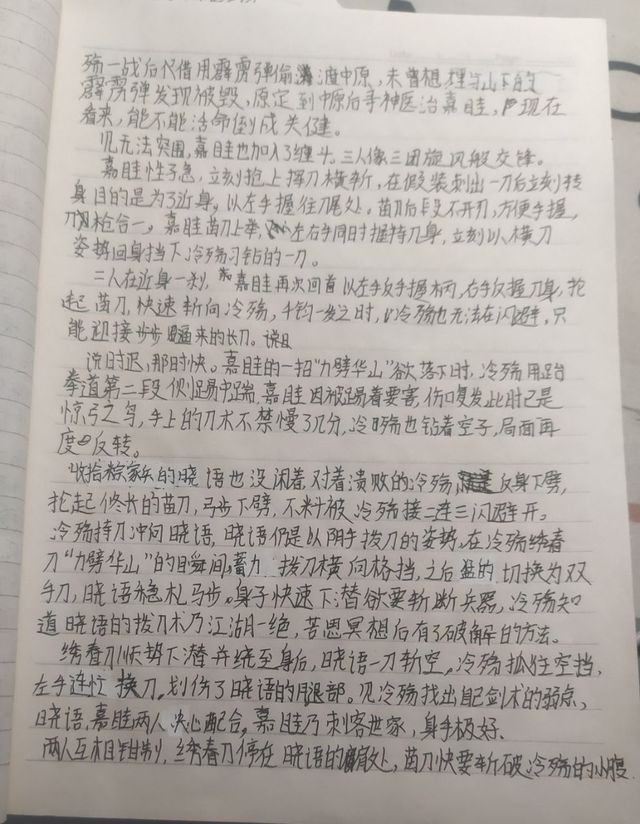 殇一战后代借用霹雳弹偷渡中原，未曾想埋与山下的
霹雳弹发现被毁，原定到中原后寻神医治嘉眭，现在
看来，能不能活命倒成关键。
见无法突围，嘉眭也加入了缠斗。三人像三团旋风般交锋。
嘉眭性子急，立刻抢上挥刀横斩，在假装刺出一刀后立刻转
身目的是为了近身，以左手握住刀尾处。苗刀后段不开刃，方便手握，
刀枪合一。嘉眭苗刀上举，左右手同时握持刀身，立刻以横刀
姿势回身挡下冷殇刁钻的一刀。
三人在近身一刹，嘉眭再次回首以左手反手握柄，右手反握刀身，抡
起苗刀，快速斩向冷殇，千钧一发之时，冷殇也无法在闪避，只
能迎接步步逼来的长刀。
说时迟，那时快。嘉眭的一招“力劈华山”欲落下时，冷殇用跆
拳道第二段侧踢中踹，嘉眭因被踢着要害，伤口复发此时已是
惊弓之鸟，手上的刀术不禁慢了几分，冷殇也钻着空子，局面再
度反转。
收拾家兵的晓语也没闲着，对着溃败的冷殇，反身下劈，
抡起修长的苗刀，马步下劈，不料被冷殇接二连三闪避开。
冷殇持刀冲向晓语，晓语仍是以阴手拨刀的姿势，在冷殇绣春
刀“力劈华山”的瞬间，蓄力拨刀横向格挡，之后猛的切换为双
手刀，晓语稳扎马步，身子快速下潜欲要斩断兵器，冷殇知
道晓语的拨刀术乃江湖一绝，苦思冥想后有了破解的方法。
绣春刀顺势下潜并绕至身后，晓语一刀斩空，冷殇抓住空挡，
左手连忙换刀，划伤了晓语的腿部。见冷殇找出自己剑术的弱点，
晓语，嘉眭两人决心配合，嘉眭乃刺客世家，身手极好、
两人互相钳制，绣春刀停在晓语的肩处，苗刀快要斩破冷殇的小腹